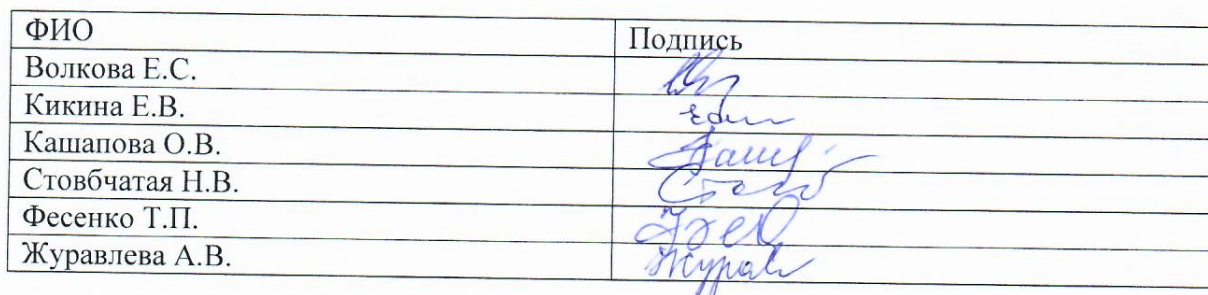 ФИО Подпись
Волкова Е.С.
Кикина Е.В.
Кашапова О.В.
Стовбчатая Н.В.
Фесенко Т.П.
Журавлева А.В. Журавл